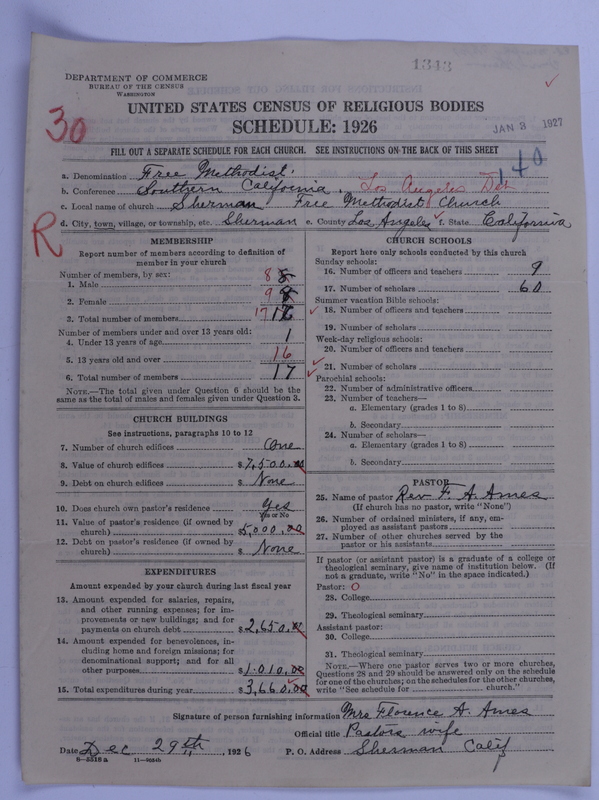 1343
DEPARTMENT OF COMMERCE
BUREAU OF THE CENSUS
WASHINGTON
UNITED STATES CENSUS OF RELIGIOUS BODIES
SCHEDULE: 1926
30
JAN 3 1927
FILL OUT A SEPARATE SCHEDULE FOR EACH CHURCH. SEE INSTRUCTIONS ON THE BACK OF THIS SHEET
140
a. Denomination Free Methodist.
b. Conference Southern California. Los Angeles Det
c. Local name of church Sherman Free Methodist Church
d. City, town, village, or township, etc. Sherman e. County Los Angeles f. State California
R
MEMBERSHIP
Report number of members according to definition of
member in your church
Number of members, by sex:
1. Male 8 8
2. Female 9 8
3. Total number of members 17 16
Number of members under and over 13 years old:
4. Under 13 years of age 1
5. 13 years old and over 16
6. Total number of members 17
NOTE.—The total given under Question 6 should be the
same as the total of males and females given under Question 3.
CHURCH BUILDINGS
See instructions, paragraphs 10 to 12
7. Number of church edifices One
8. Value of church edifices $7,500.00
9. Debt on church edifices $ None
10. Does church own pastor's residence Yes
Yes or No
11. Value of pastor's residence (if owned by
church) $5,000.00
12. Debt on pastor's residence (if owned by
church) $ None
EXPENDITURES
Amount expended by your church during last fiscal year
13. Amount expended for salaries, repairs,
and other running expenses; for im-
provements or new buildings; and for
payments on church debt $2,650.00
14. Amount expended for benevolences, in-
cluding home and foreign missions; for
denominational support; and for all
other purposes $1,010.00
15. Total expenditures during year $3,660.00
CHURCH SCHOOLS
Report here only schools conducted by this church
Sunday schools:
16. Number of officers and teachers 9
17. Number of scholars 60
Summer vacation Bible schools:
18. Number of officers and teachers
19. Number of scholars
Week-day religious schools:
20. Number of officers and teachers
21. Number of scholars
Parochial schools:
22. Number of administrative officers
23. Number of teachers—
a. Elementary (grades 1 to 8)
b. Secondary
24. Number of scholars—
a. Elementary (grades 1 to 8)
b. Secondary
PASTOR
25. Name of pastor Rev F. A. Ames
(If church has no pastor, write "None")
26. Number of ordained ministers, if any, em-
ployed as assistant pastors
27. Number of other churches served by the
pastor or his assistants
If pastor (or assistant pastor) is a graduate of a college or
theological seminary, give name of institution below. (If
not a graduate, write "No" in the space indicated.)
Pastor: O
28. College
29. Theological seminary
Assistant pastor:
30. College
31. Theological seminary
NOTE.—Where one pastor serves two or more churches,
Questions 28 and 29 should be answered only on the schedule
for one of the churches; on the schedules for the other churches,
write "See schedule for church."
Signature of person furnishing information Mrs Florence A. Ames
Official title Pastors wife
Date Dec 29th, 1926 P. O. Address Sherman Calif
8—5518a 11—9054b